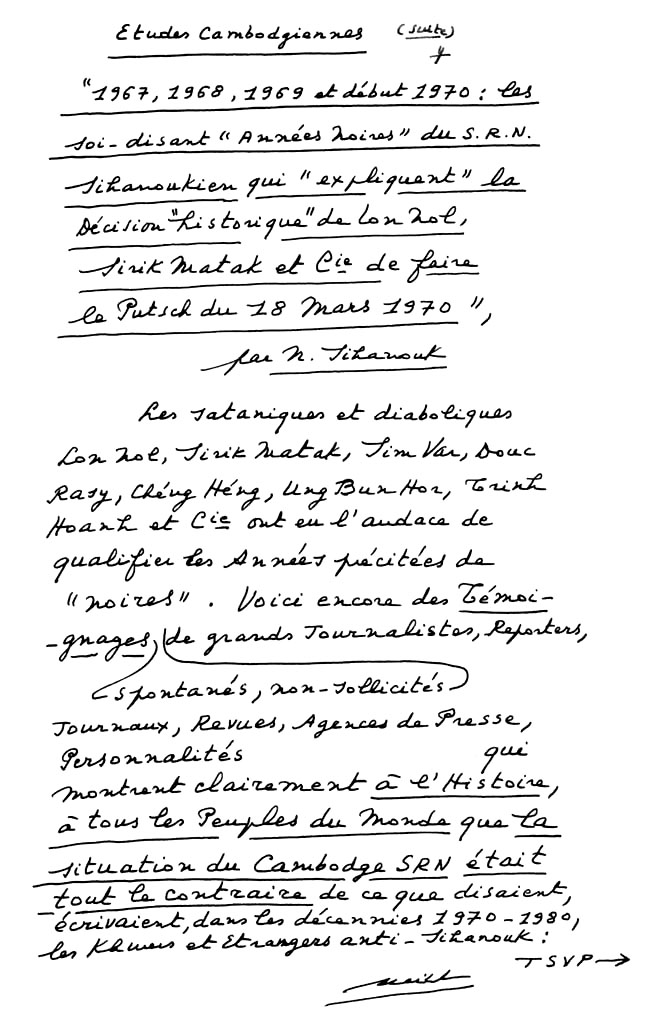 Etudes Cambodgiennes (suite)
"1967, 1968, 1969 et début 1970 : les
soi-disant "Années Noires" du S.R.N.
Sihanoukien qui "expliquent" la
Décision "historique" de Lon Nol,
Sirik Matak et Cie de faire
le Putsch du 18 Mars 1970",
par N. Sihanouk
Les sataniques et diaboliques
Lon Nol, Sirik Matak, Sim Var, Douc
Rasy, Chéng Héng, Ung Bun Hor, Trinh
Hoanh et Cie ont eu l'audace de
qualifier les Années pécitées de
"noires". Voici encore des Témoi-
-gnages, de grands Journalistes, Reporters,
spontanés, non-sollicités
Journaux, Revues, Agences de Presse,
Personnalités qui
montrent clairement à l'Histoire,
à tous les Peuples du Monde que la
situation du Cambodge SRN était
tout le contraire de ce que disaient,
écrivaient, dans les décennies 1970-1980,
les Khmers et Etrangers anti-Sihanouk :
TSVP →